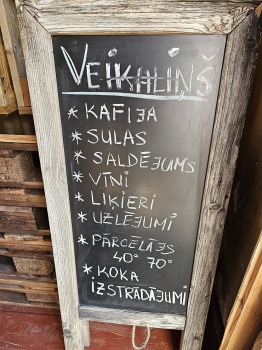 VEIKALIŅŠ
* KAFIJA
* SULAS
* SALDĒJUMS
* VĪNI
* LIĶIERI
* UZLĒJUMI
* PĀRCĒLĀJS
40° 70°
* KOKA
IZSTRĀDĀJUMI